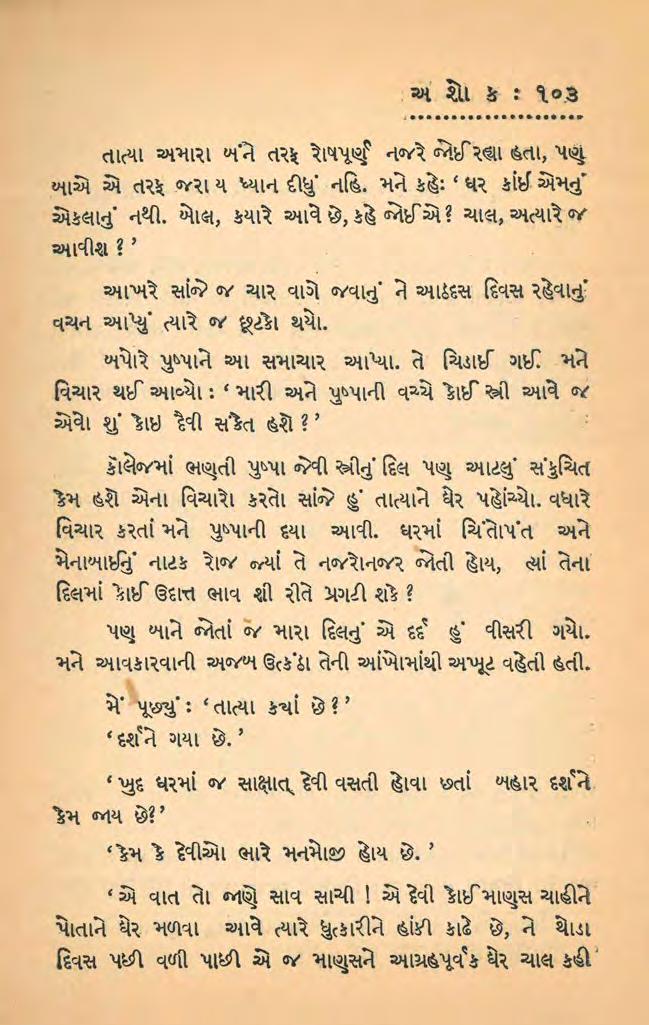 અ શો ક : ૧૦૩
તાત્યા અમારા બંને તરફ રોષપૂર્ણ નજરે જોઈ રહ્યા હતા, પણ
બાએ એ તરફ જરા ય ધ્યાન દીધું નહિ. મને કહેઃ ‘ ઘર કાંઈ એમનું
એકલાનું નથી. બોલ, કયારે આવે છે, કહે જોઈએ? ચાલ, અત્યારે જ
આવીશ ? ’
આખરે સાંજે જ ચાર વાગે જવાનું ને આઠદસ દિવસ રહેવાનું
વચન આપ્યું ત્યારે જ છૂટકો થયો.
બપોરે પુષ્પાને આ સમાચાર આપ્યા. તે ચિડાઈ ગઈ. મને
વિચાર થઈ આવ્યો : ‘ મારી અને પુષ્પાની વચ્ચે કોઈ સ્ત્રી આવે જ
એવો શું કોઇ દૈવી સંકેત હશે ? ’
કૉલેજમાં ભણતી પુષ્પા જેવી સ્ત્રીનું દિલ પણ આટલું સંકુચિત
કેમ હશે એના વિચારો કરતો સાંજે હું તાત્યાને ઘેર પહોંચ્યો. વધારે
વિચાર કરતાં મને પુષ્પાની દયા આવી. ઘરમાં ચિંતોપંત અને
મેનાબાઈનું નાટક રોજ જ્યાં તે નજરોનજર જોતી હોય, ત્યાં તેના
દિલમાં કોઈ ઉદાત્ત ભાવ શી રીતે પ્રગટી શકે ?
પણ બાને જોતાં જ મારા દિલનું એ દર્દ હું વીસરી ગયો.
મને આવકારવાની અજબ ઉત્કંઠા તેની આંખોમાંથી અખૂટ વહેતી હતી.
મેં પૂછ્યું : ‘ તાત્યા ક્યાં છે ? ’
‘ દર્શને ગયા છે. ’
‘ ખુદ ઘરમાં જ સાક્ષાત્ દેવી વસતી હોવા છતાં બહાર દર્શને
કેમ જાય છે?’
‘ કેમ કે દેવીઓ ભારે મનમોજી હોય છે. ’
‘ એ વાત તો જાણે સાવ સાચી ! એ દેવી કોઈ માણસ ચાહીને
પોતાને ઘેર મળવા આવે ત્યારે ધુત્કારીને હાંકી કાઢે છે, ને થોડા
દિવસ પછી વળી પાછી એ જ માણસને આગ્રહપૂર્વક ઘેર ચાલ કહી